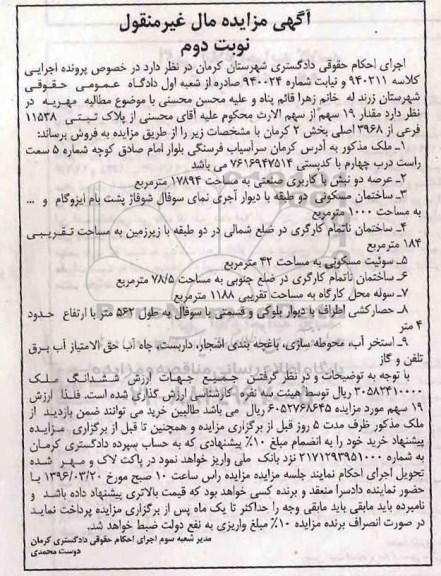 آگهی مزایده مال غیرمنقول
نوبت دوم
اجرای احکام حقوقی دادگستری شهرستان کرمان در نظر دارد در خصوص پرونده اجرایی
کلاسه ۹۴۰۲۱۱ و نیابت شماره ۹۴۰۰۲۴ صادره از شعبه اول دادگاه عمومی حقوقی
شهرستان زرند له خانم زهرا قائم پناه و علیه محسن محسنی با موضوع مطالبه مهریه در
نظر دارد مقدار ۱۹ سهم از سهم الارث محکوم علیه آقای محسنی از پلاک ثبتی ۱۱۵۳۸
فرعی از ۳۹۶۸ اصلی بخش ۲ کرمان با مشخصات زیر را از طریق مزایده به فروش برساند:
۱ـ ملک مذکور به آدرس کرمان سرآسیاب فرسنگی بلوار امام صادق کوچه شماره ۵ سمت
راست درب چهارم با کدپستی ۷۶۱۶۹۴۷۵۱۴ می باشد
۲ـ عرصه دو نبش با کاربری صنعتی به مساحت ۱۷۸۹۴ مترمربع
۳ـ ساختمان مسکونی دو طبقه با دیوار آجری نمای سوفال شوفاژ پشت بام ایزوگام و ...
به مساحت ۱۰۰۰ مترمربع
۴ـ ساختمان ناتمام کارگری در ضلع شمالی در دو طبقه با زیرزمین به مساحت تقریبی
۱۸۴ مترمربع
۵ـ سوئیت مسکونی به مساحت ۴۲ مترمربع
۶ـ ساختمان ناتمام کارگری در ضلع جنوبی به مساحت ۷۸/۵ مترمربع
۷ـ سوله محل کارگاه به مساحت تقریبی ۱۱۸۸ مترمربع
۸ـ حصارکشی اطراف با دیوار بلوکی و قسمتی با سوفال به طول ۵۶۲ متر با ارتفاع حدود
۴ متر
۹ـ استخر آب، محوطه سازی، باغچه بندی اشجار، داربست، چاه آب حق الامتیاز آب برق
تلفن و گاز
با توجه به توضیحات و در نظر گرفتن جمیع جهات ارزش ششدانگ ملک
۳۰۵۸۲۴۱۰۰۰۰ ریال توسط هیئت سه نفره کارشناسی ارزش گذاری شده است. فلذا ارزش
۱۹ سهم مورد مزایده ۶۰۵۲۷۶۸۶۴۵ ریال می باشد طالبین خرید می توانند ضمن بازدید از
ملک مذکور ظرف مدت ۵ روز قبل از برگزاری مزایده و همچنین تا قبل از برگزاری مزایده
پیشنهاد خرید خود را به انضمام مبلغ ۱۰٪ پیشنهادی که به حساب سپرده دادگستری کرمان
به شماره ۲۱۷۱۲۹۳۹۵۱۰۰۰ نزد بانک ملی واریز خواهد نمود در پاکت لاک و مهر شده
تحویل اجرای احکام نمایند جلسه مزایده راس ساعت ۱۰ صبح مورخ ۱۳۹۶/۰۳/۲۰ با
حضور نماینده دادسرا منعقد و برنده کسی خواهد بود که قیمت بالاتری پیشنهاد داده باشد و
نامبرده باید مابقی باید مابقی وجه را حداکثر تا یک ماه پس از برگزاری مزایده پرداخت نماید
در صورت انصراف برنده مزایده ۱۰٪ مبلغ واریزی به نفع دولت ضبط خواهد شد.
مدیر شعبه سوم اجرای احکام حقوقی دادگستری کرمان
دوست محمدی